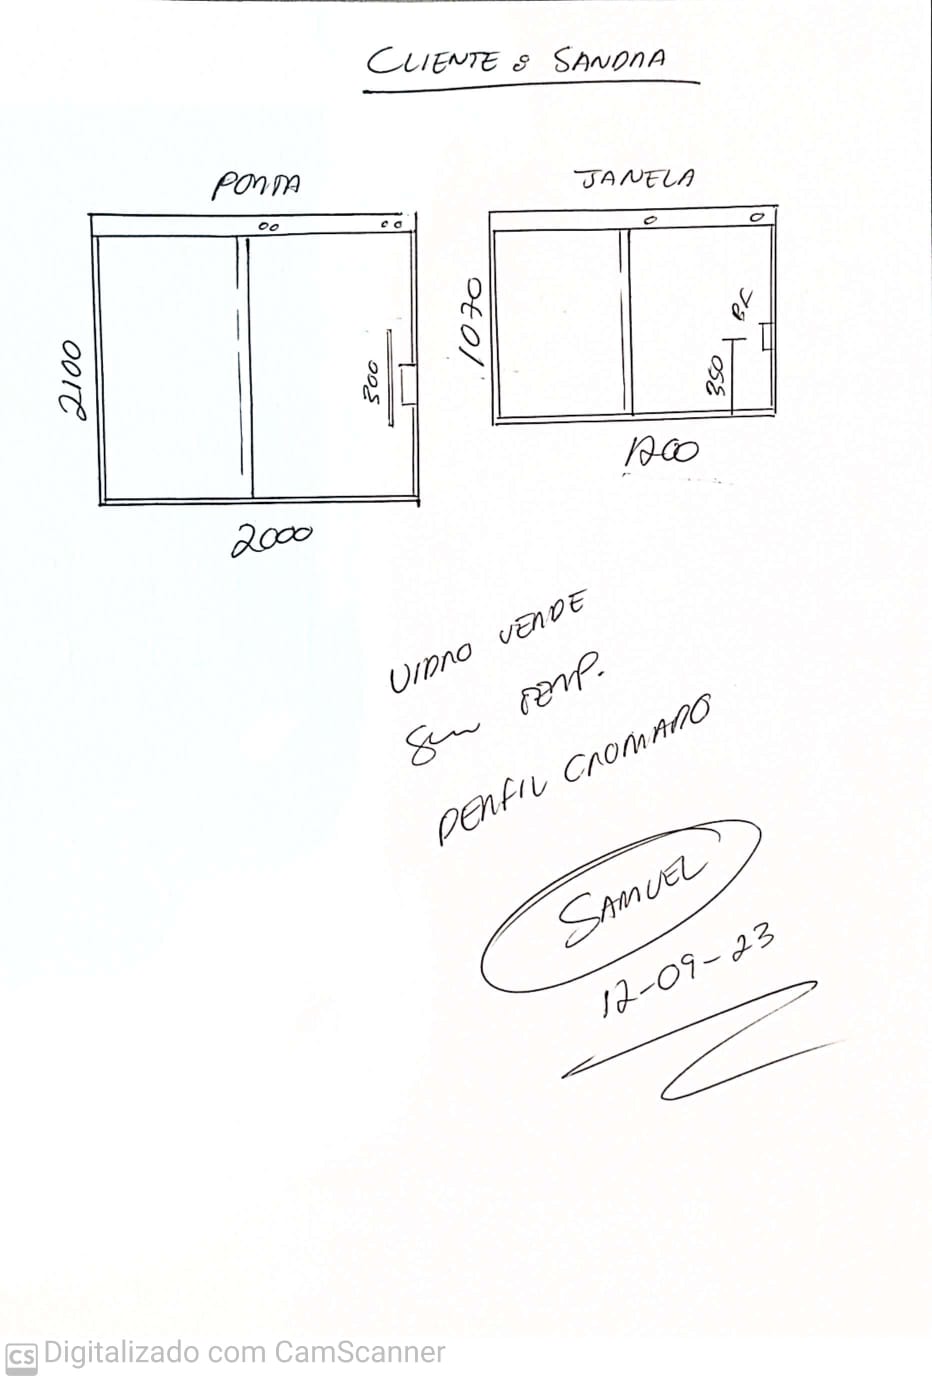 CLIENTE: SANDRA
PORTA
JANELA
2100
300
2000
1070
BX
350
1200
VIDRO VERDE
8mm TEMP.
PERFIL CROMADO
SAMUEL
12-09-23
CS Digitalizado com CamScanner